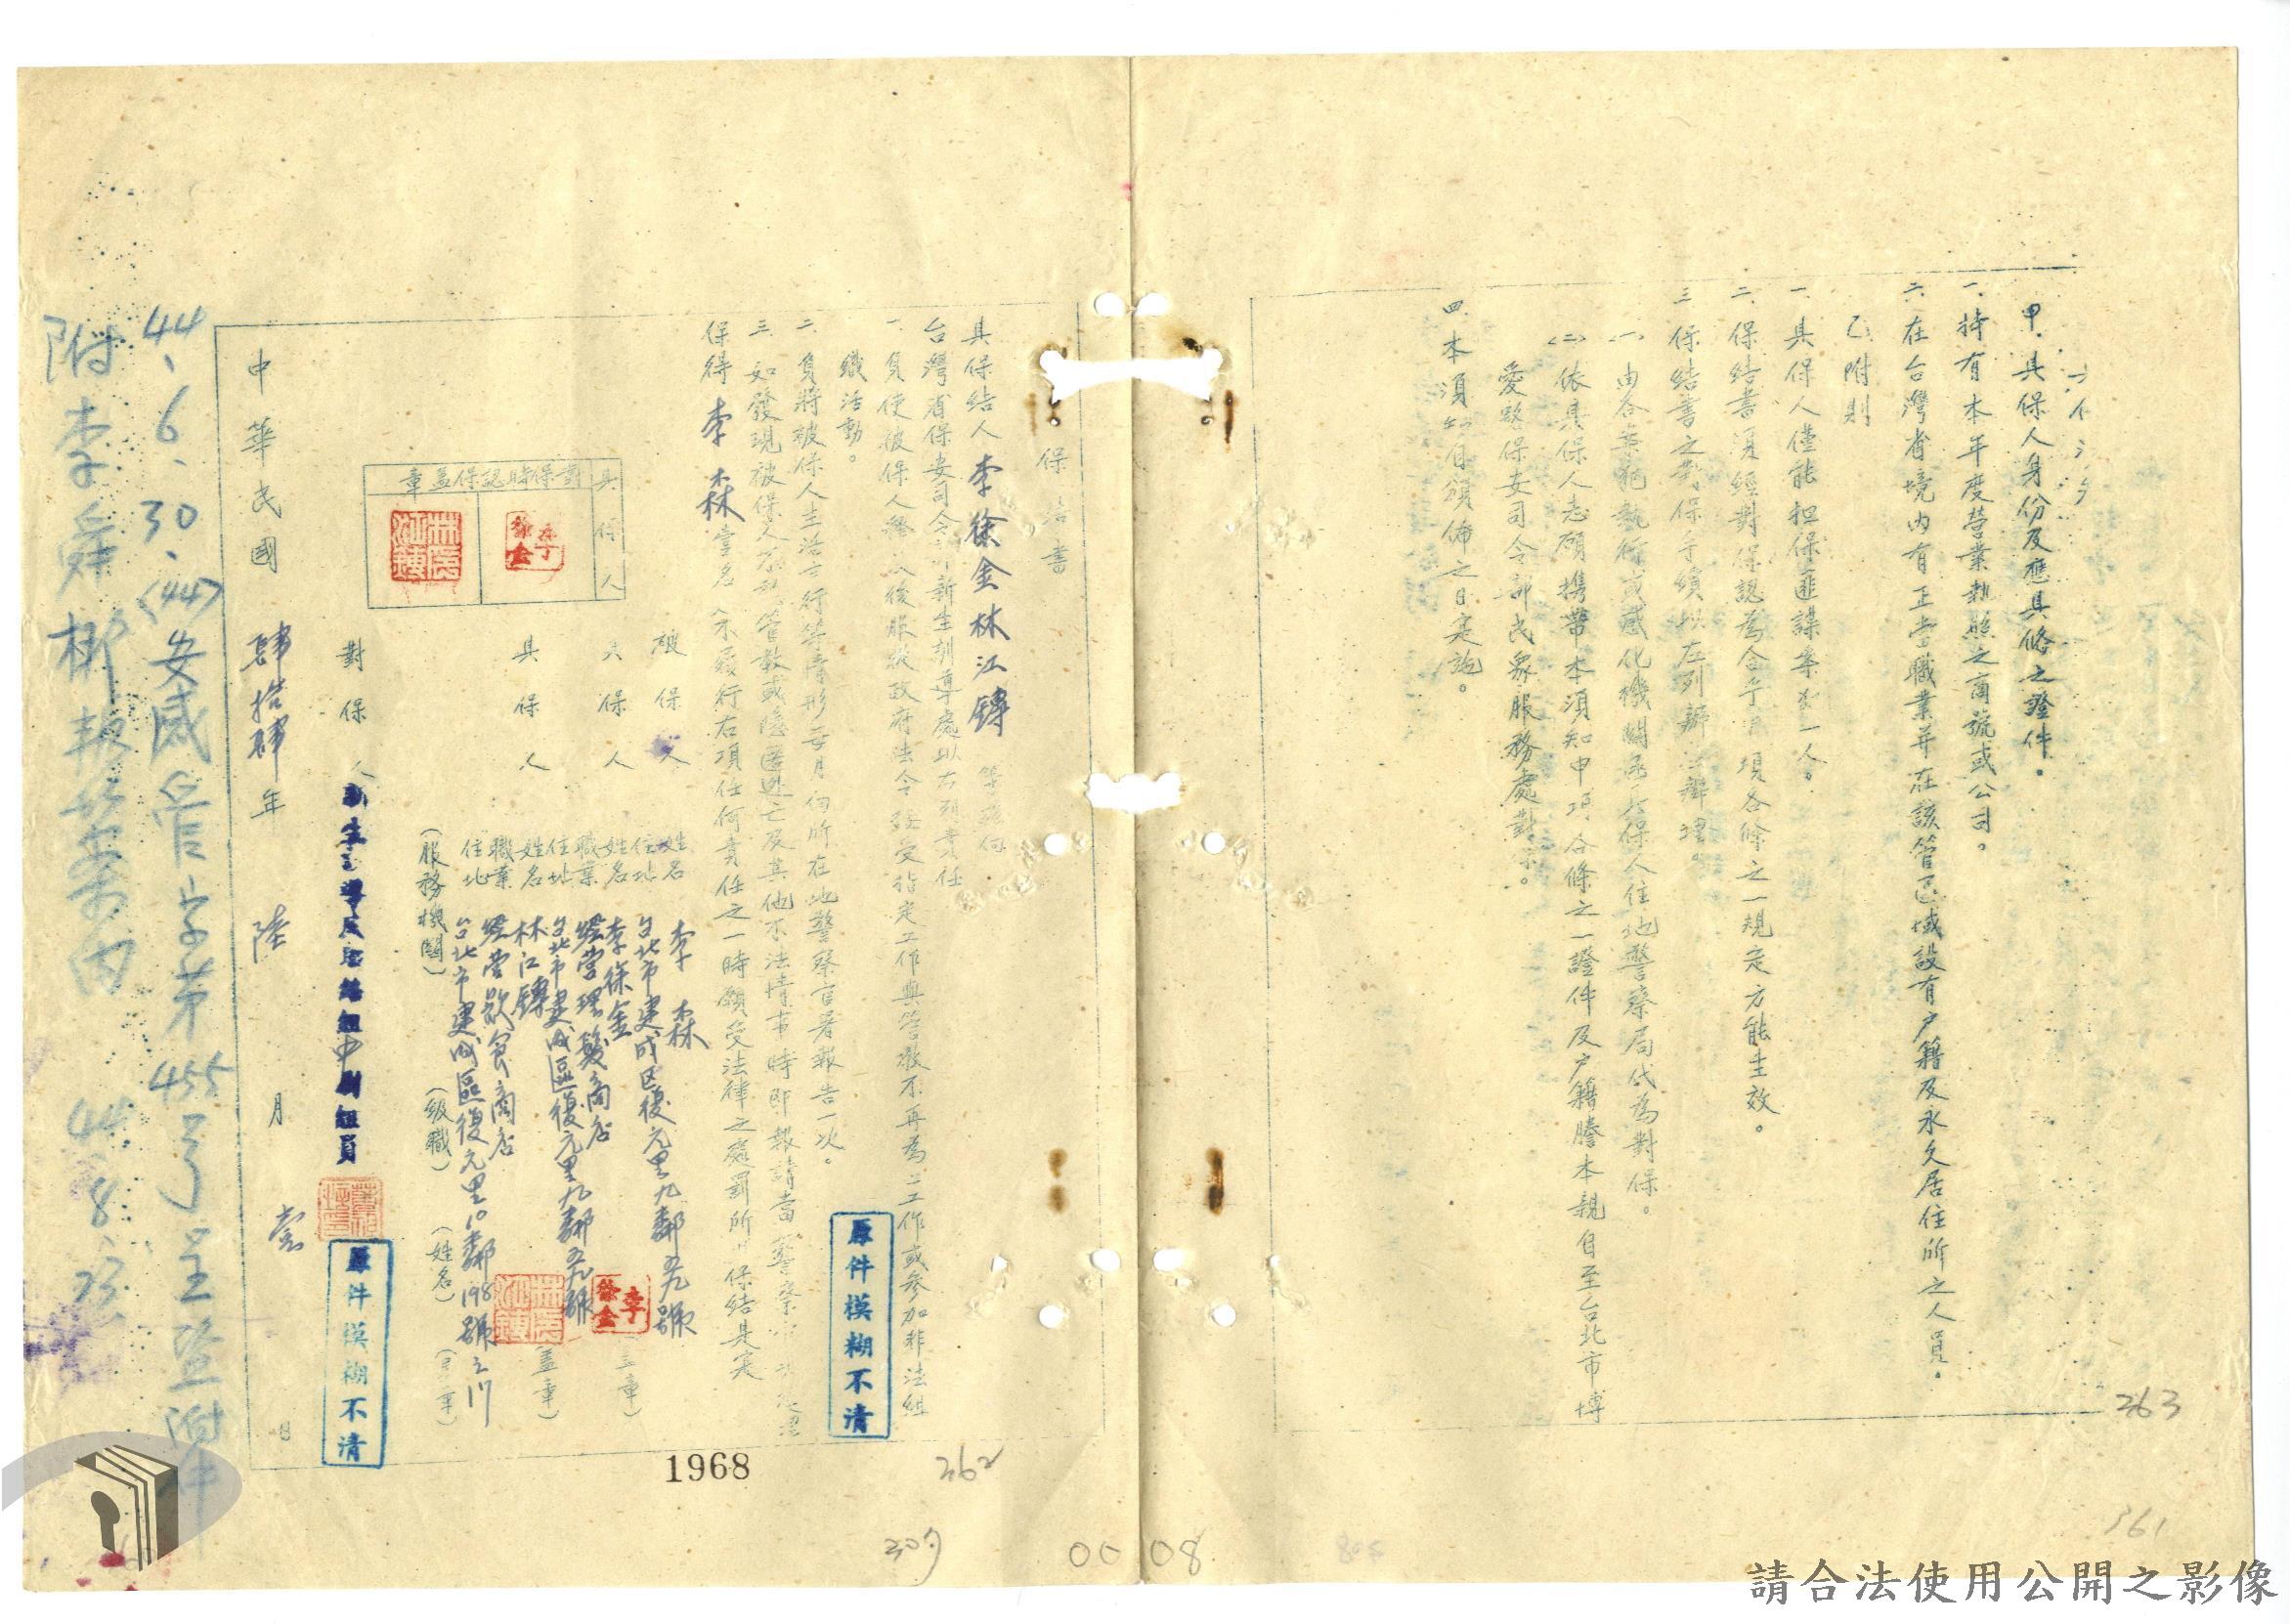 甲、具保人身份及應具備之證件。
一、持有本年度營業執照之商號或公司。
二、在台灣省境內有正當職業并在該管區域設有户籍及永久居住所之人員。
乙、附則
一、具保人僅能担保匪諜案犯一人。
二、保結書須經對保認為合乎甲項各條之一規定方能生效。
三、保結書之對保手續以左列辦法辦理。
㈠由各案犯執行或感化機關函具保人住地警察局代為對保。
㈡依具保人志願携帶本須知甲項合條之一證件及户籍謄本親自至台北市博
愛路保安司令部民衆服務處對保。
四、本須知自頒佈之日実施。
263
361
保結書
具保結人 李徐金 林江鏄 等茲向
台灣省保安司令部新生訓導處以右列責任
一、負使被保人釋放後服從政府法令接受指定工作與管教不再為匪工作或參加非法組
織活動。
二、負將被保人生活言行等情形每月向所在地警察官署報告一次。
三、如發現被保人不服管教或隱匿逃亡及其他不法情事時即報請當地警察
保得 李森 掌名（不履行右項任何責任之一時願受法律之處罰所具保結是実
原件模糊不清
被保人 姓名 李森
住址 台北市建成区復元里九鄰五九號
具保人 姓名 李徐金
職業 經營理髮商店
住址 台北市建成區復元里九鄰五九號
（蓋章）
具保人 姓名 林江鏄
職業 經營飲食商店
住址 台北市建成區復元里10鄰198號之17
（蓋章）
具保人
對保時認保蓋章
李徐金
對保人
（服務機關） （級職） （姓名） （蓋章）
原件模糊不清
中華民國肆拾肆年 陸 月 壹 日
44、6、30、(44)安感管字第455号呈暨附件
1968
262
307
00 08
請合法使用公開之影像